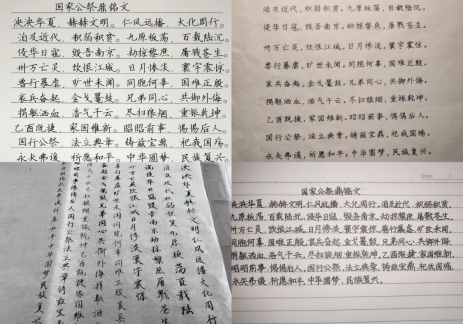 国家公祭鼎铭文
泱泱华夏，赫赫文明。仁风远播，大化周行。
洎及近代，积弱积贫。九原板荡，百载陆沉。
侵华日寇，毁吾南京。劫掠黎庶，屠戮苍生。
卅万亡灵，饮恨江城。日月惨淡，寰宇震惊。
兽行暴虐，旷世未闻。同胞何辜，国难正殷。
哀兵奋起，金戈鼍鼓。兄弟同心，共御外侮。
捐躯洒血，浩气干云。尽扫狼烟，重振乾坤。
乙酉既捷，家国维新。昭昭前事，惕惕后人。
国行公祭，法立典章。铸兹宝鼎，祀我国殇。
永矢弗谖，祈愿和平。中华圆梦，民族复兴。
洎及近代，积弱积贫。九原板荡，百载陆沉。
侵华日寇，毁吾南京。劫掠黎庶，屠戮苍生。
卅万亡灵，饮恨江城。日月惨淡，寰宇震惊。
兽行暴虐，旷世未闻。同胞何辜，国难正殷。
哀兵奋起，金戈鼍鼓。兄弟同心，共御外侮。
捐躯洒血，浩气干云。尽扫狼烟，重振乾坤。
乙酉既捷，家国维新。昭昭前事，惕惕后人。
国行公祭，法立典章。铸兹宝鼎，祀我国殇。
永矢弗谖，祈愿和平。中华圆梦，民族复兴。
泱泱华夏赫赫文明仁风远播大化周行
洎及近代积弱积贫九原板荡百载陆
国家公祭鼎铭文
泱泱华夏，赫赫文明。仁风远播，大化周行。洎及近代，积弱积贫。
九原板荡，百载陆沉。侵华日寇，毁吾南京。劫掠黎庶，屠戮苍生。
卅万亡灵，饮恨江城。日月惨淡，寰宇震惊。兽行暴虐，旷世未闻。
同胞何辜，国难正殷。哀兵奋起，金戈鼍鼓。兄弟同心，共御外侮。
捐躯洒血，浩气干云。尽扫狼烟，重振乾坤。乙酉既捷，家国维新。
昭昭前事，惕惕后人。国行公祭，法立典章。铸兹宝鼎，祀我国殇。
永矢弗谖，祈愿和平。中华圆梦，民族复兴。